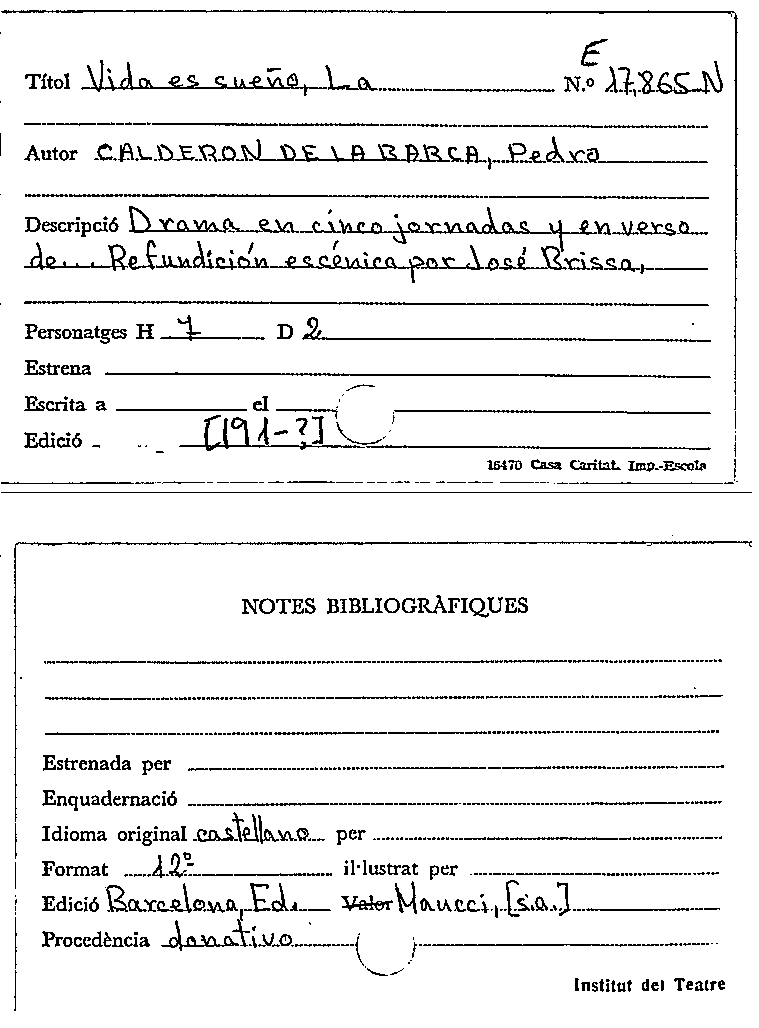 E
Títol Vida es sueño, La N.º 17,865 N
Autor CALDERON DE LA BARCA, Pedro
Descripció Drama en cinco jornadas y en verso
de... Refundición escénica por José Brissa,
Personatges H 7 D 2
Estrena
Escrita a el
Edició [191-?]
16470 Casa Caritat. Imp.-Escola
NOTES BIBLIOGRÀFIQUES
Estrenada per
Enquadernació
Idioma original castellano per
Format 12º il·lustrat per
Edició Barcelona, Ed. Valor Maucci, [s.a.]
Procedència donativo
Institut del Teatre